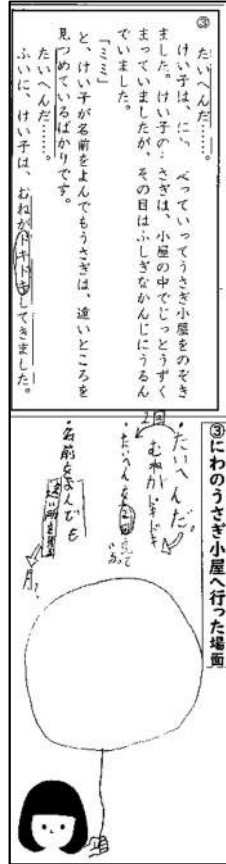 ③
たいへんだ……。
けい子は、に べっていってうさぎ小屋をのぞき
ました。けい子の さぎは、小屋の中でじっとうずく
まっていましたが、その目はふしぎなかんじにうるん
でいました。
「ミミ」
と、けい子が名前をよんでもうさぎは、遠いところを
見つめているばかりです。
たいへんだ……。
ふいに、けい子は、むねがドキドキしてきました。
③にわのうさぎ小屋へ行った場面
・たいへんだ。
2回
むねがドキドキ
・たいへんな 回
・名前をよんでも
遠い所を
月?